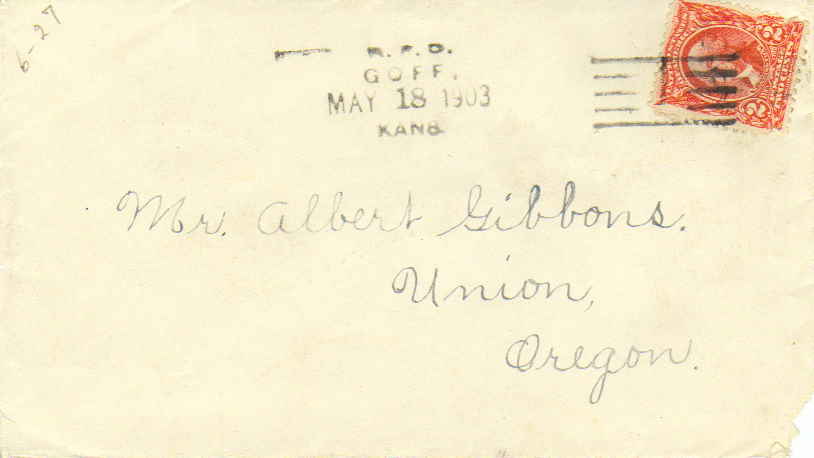 6-27
R.F.D.
GOFF.
MAY 18 1903
KANS.
2 2
TWO CENTS
Mr. Albert Gibbons.
Union,
Oregon.